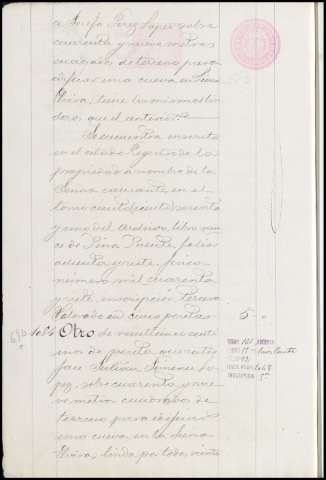 a Josefa Perez Lopez sobre
cuarenta y nueve metros
cuadrados de terreno para
edificar una cueva en Sierra
Elvira; tiene los mismos lin-
deros que el anterior.
Se encuentra inscrito
en el citado Registro de la
propiedad a nombre de la
Señora causante en el
tomo ciento sesenta
y uno del Archivo, libro
de Pinos Puente, folio
y siete, finca
número mil cuarenta
y siete inscripción tercera
Valorado en cinco pesetas
5
1084 Otro
de veinticinco centi-
mos de peseta que satis-
face Julian Jimenez Lo-
pez, sobre cuarenta y nue-
ve metros cuadrados de
terreno para edificar
una cueva en la Sierra
Elvira; linda por todos vientos